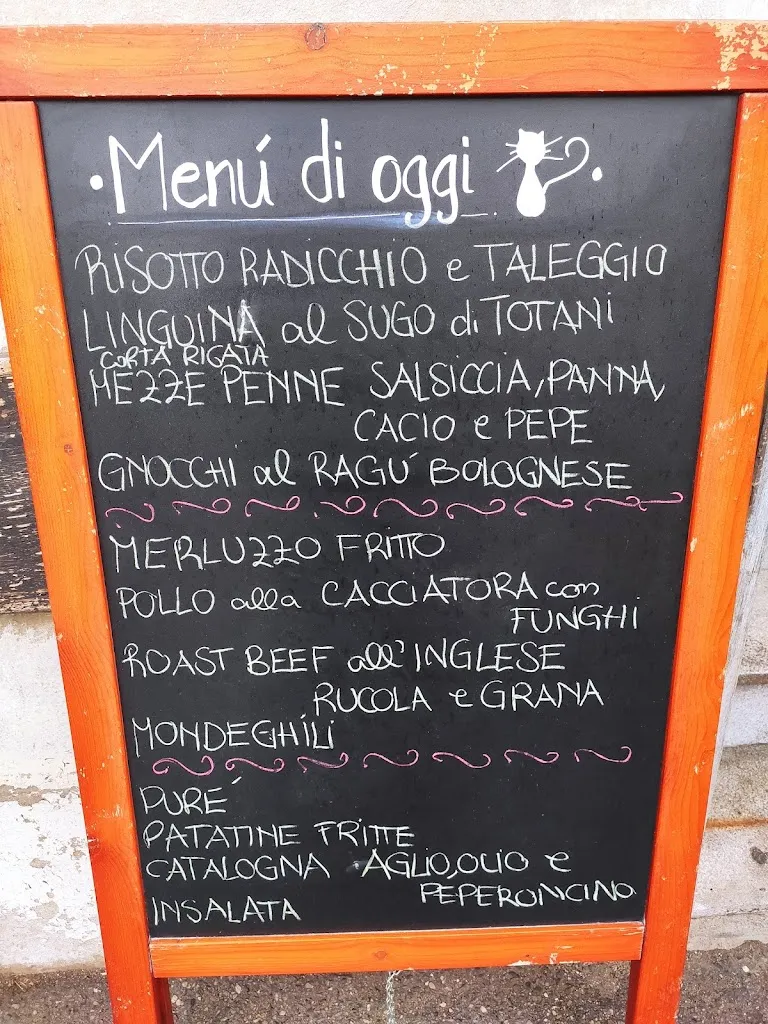 ·Menú di oggi·
RISOTTO RADICCHIO e TALEGGIO
LINGUINA al SUGO di TOTANI
CORTA RIGATA
MEZZE PENNE SALSICCIA, PANNA,
CACIO e PEPE
GNOCCHI al RAGU' BOLOGNESE
MERLUZZO FRITTO
POLLO alla CACCIATORA con
FUNGHI
ROAST BEEF all'INGLESE
RUCOLA e GRANA
MONDEGHILI
PURE'
PATATINE FRITTE
CATALOGNA AGLIO, OLIO e
PEPERONCINO
INSALATA